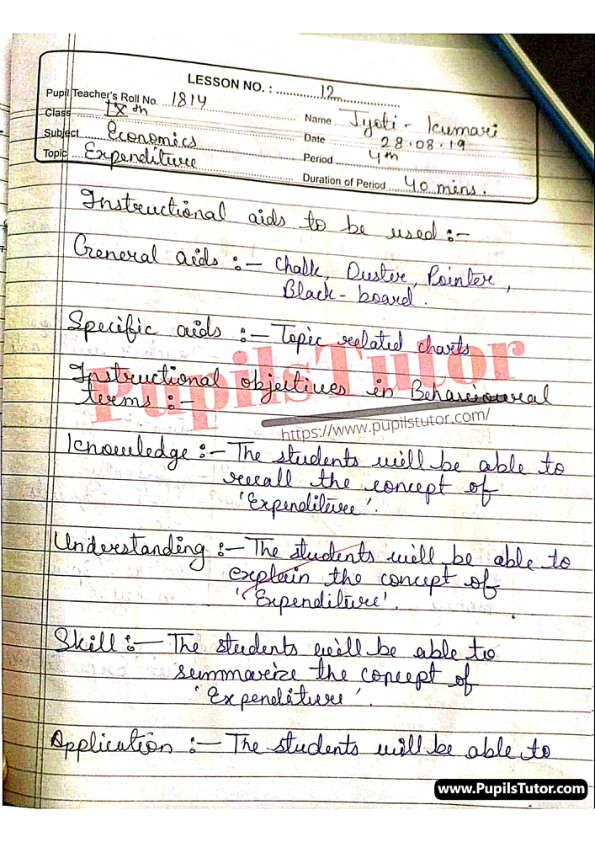 LESSON NO. : 12
Pupil Teacher's Roll No. 1814
Name Jyoti - Kumari
Class IXth
Date 28.08.19
Subject Economics
Period 4th
Topic Expenditure
Duration of Period 40 mins.
Instructional aids to be used :-
General aids :- Chalk, Duster, Pointer,
Black-board.
Specific aids :- Topic related charts
Instructional objectives in Behavioural
terms :-
PupilsTutor
https://www.pupilstutor.com/
Knowledge :- The students will be able to
recall the concept of
'Expenditure'.
Understanding :- The students will be able to
explain the concept of
'Expenditure'.
Skill :- The students will be able to
summarize the concept of
'Expenditure'.
Application :- The students will be able to
www.PupilsTutor.com